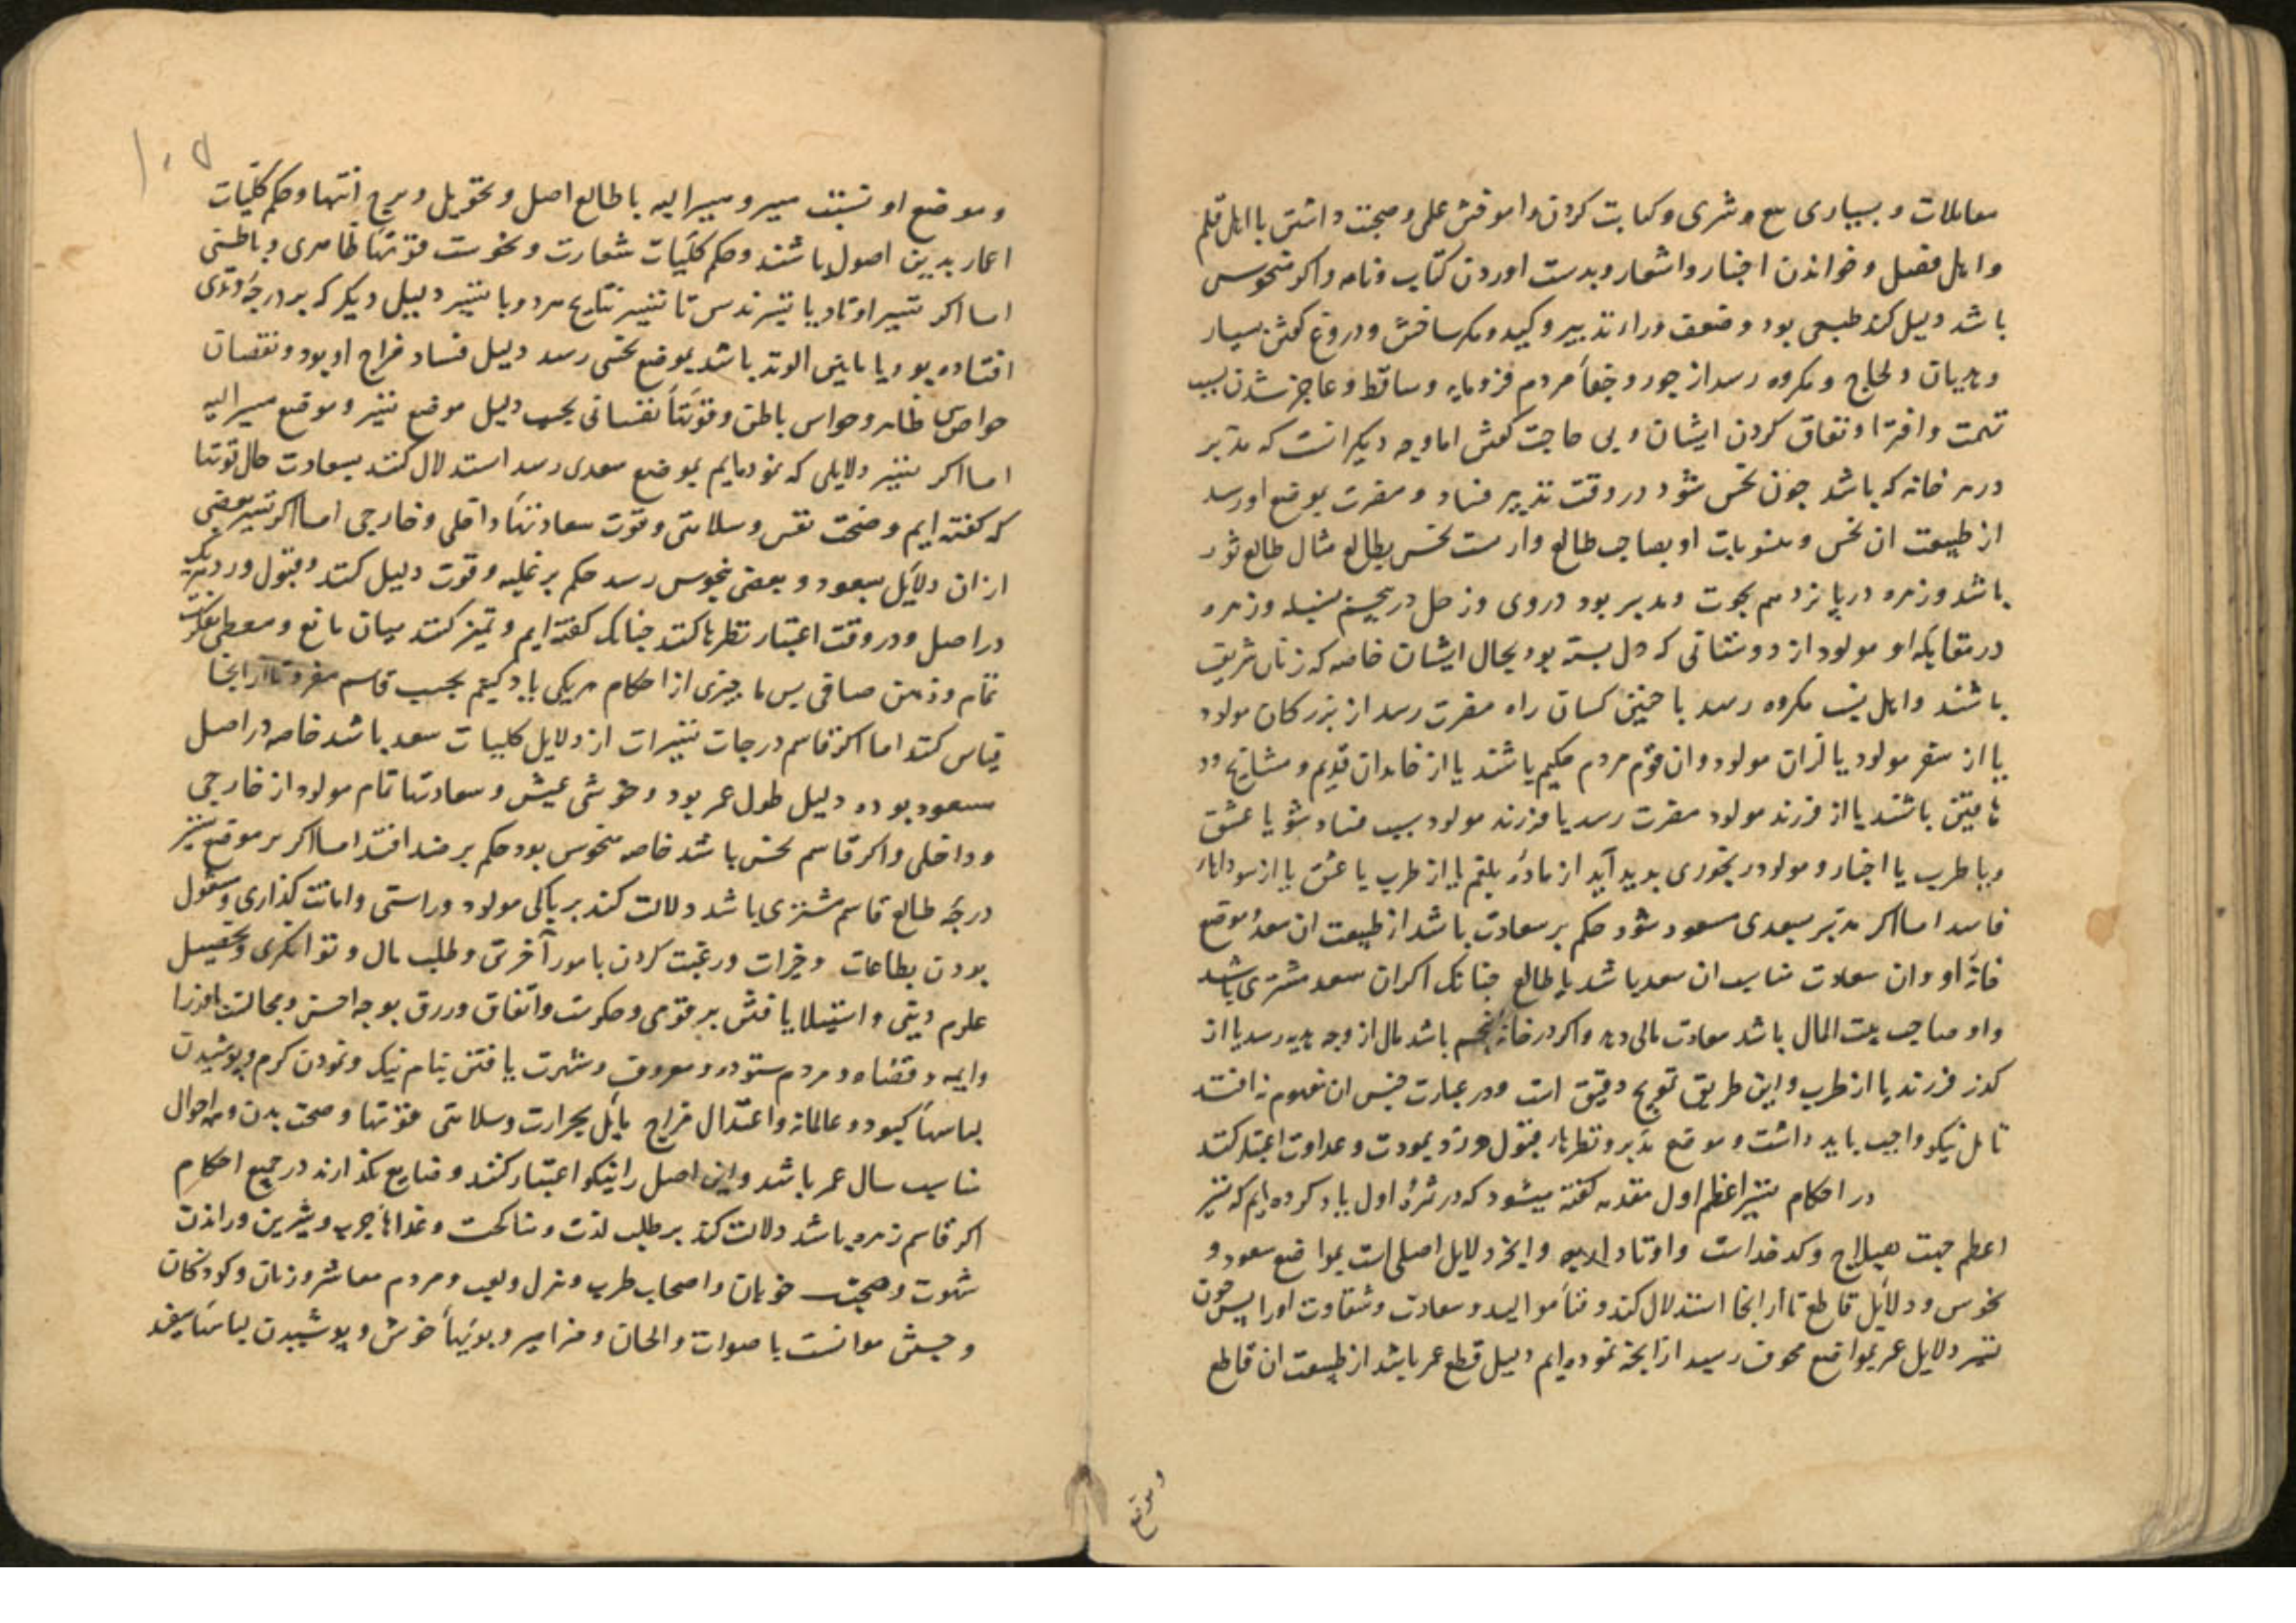 معاملات و بسیاری بیع و شری و کتابت کردن و اموختن علمی و صحبت داشتن با اهل قلم
و اهل فضل و خواندن اخبار و اشعار و بدست اوردن کتاب و نامه و اکر منحوس
باشد دلیل کند طبیعی بود و ضعف در تدبیر و کید و مکر ساختن و دروغ کفتن بسیار
و هذیان و لجاج و مکروه رسد از جور و جفاء مردم فرومایه و ساقط و عاجز شدن بسبب
تهمت و افترا و نفاق کردن ایشان و بی حاجت کفتن اما وجه دیکر انست که مدبر
در هر خانه که باشد چون نحس شود در وقت تدبیر فساد و مضرت بموضع او رسد
از طبیعت ان نحس و منسوبات او بصاحب طالع وار ست نحس بطالع مثال طالع ثور
باشد و زهره در پانزدهم بحوت و مدبر بود در وی و زحل در پنجم سنبله و زهره
در مقابله او مولود از دوستانی که دل بسته بود بحال ایشان خاصه که زنان شریف
باشند و اهل بیت مکروه رسد یا چنین کسان راه مضرت رسد از بزرکان مولود
یا از سفر مولود یا اقران مولود و ان قوم مردم حکیم باشند یا از خاندان قدیم و مشایخ
باشند یا از فرزند مولود مضرت رسد یا فرزند مولود بسبب فساد شو یا عشق
و یا طرب یا اخبار و مولود رنجوری بدید آید از ماده بلغم یا از طرب یا عشق یا از سوداهاء
فاسد اما اکر مدبر سعدی مسعود شود حکم بر سعادت باشد از طبیعت ان سعد و موضع
خانه او و ان سعادت مناسب ان سعد باشد یا طالع چنانک اکر ان سعد مشتری باشد
و او صاحب بیت المال باشد سعادت مالی دهد و اکر در خانه پنجم باشد مال از وجه هدیه رسد یا از
کدز فرزند یا از طرب و این طریق تفریح دقیق است و در عبارت جنس ان مفهوم نه افتد
تامل نیکو واجب باید داشت و موضع مدبر و نظرها و قبول و رد و بمودت و عداوت اعتبار کنند
در احکام تسییر اعظم اول مقدمه کفته میشود که در ثمره اول یاد کرده ایم که تسییر
اعظم جهت هیلاج و کدخداست و اوتاد اربعه و انچه دلایل اصلی است بمواضع سعود و
نحوس و دلایل قاطع تا از انجا استدلال کند و فناء موالید و سعادت و شقاوت او را پس چون
تسییر دلایل عمر بمواضع مخوف رسید از انچه نموده ایم دلیل قطع عمر باشد از طبیعت ان قاطع
و موضع
۱۰۵
و موضع او نسبت مسیر و مسیر الیه با طالع اصل و تحویل و برج انتها و حکم کلیات
اعمار بدین اصول باشند و حکم کلیات سعادت و نحوست قوتهاء ظاهری و باطنی
اما اکر تسییر اوتاد یا تسییر سدس تا تسییر نتایج هر دو یا تسییر دلیل دیکر که بر درجه وتدی
افتاده بود یا مابینی الوتد باشد بموضع نحسی رسد دلیل فساد مزاج او بود و نقصان
حواس ظاهر و حواس باطن و قوتهاء نفسانی بحسب دلیل موضع تسییر و موضع مسیر الیه
اما اکر تسییر دلایلی که نموده ایم بموضع سعدی رسد استدلال کنند بسعادت حال قوتها
که کفته ایم و صحت نفس و سلامتی و قوت سعادتهاء داخلی و خارجی اما اکر تسییر بعضی
از ان دلایل بسعود و بعضی بنحوس رسد حکم بر غلبه و قوت دلیل کند و قبول و رد
در اصل و در وقت اعتبار نظرها کند چنانک کفته ایم و تمیز کند میان مانع و معطی بفکرت
تمام و ذهن صافی پس ما چیزی از احکام هر یکی یاد کنیم بحسب قاسم مفرد تا از انجا
قیاس کند اما اکر قاسم درجات تسییرات از دلایل کلیات سعد باشد خاصه در اصل
مسعود بوده دلیل طول عمر بود و خوشی عیش و سعادتها تام مولود از خارجی
و داخلی و اکر قاسم نحس باشد خاصه منحوس بود حکم بر ضد افتد اما اکر بر موضع تسییر
درجه طالع قاسم مشتری باشد دلالت کند بر پاکی مولود و راستی و امانت کذاری و مشغول
بودن بطاعات و خیرات و رغبت کردن بامور آخرتی و طلب مال و توانکری و تحصیل
علوم دینی و استیلا یافتن بر قومی و حکومت و اتفاق و رزق بوجه احسن و مجالست با وزرا
و ایمه و قضاه و مردم ستوده و معروف و شهرت یافتن بنام نیک و نمودن کرم و پوشیدن
لباسهاء کبود و عالمانه و اعتدال مزاج مایل بحرارت و سلامتی قوتها و صحت بدن و همه احوال
مناسب سال عمر باشد و این اصل را نیکو اعتبار کنند و ضایع نکذارند در جمیع احکام
اکر قاسم زهره باشد دلالت کند بر طلب لذت و مناکحت و غداهاء چرب و شیرین و راندن
شهوت و صحبت خوبان و اصحاب طرب و هزل و لعب و مردم معاشر و زنان و کودکان
و جستن موانست با صوات و الحان و مزامیر و بویهاء خوش و پوشیدن لباسهاء سفید